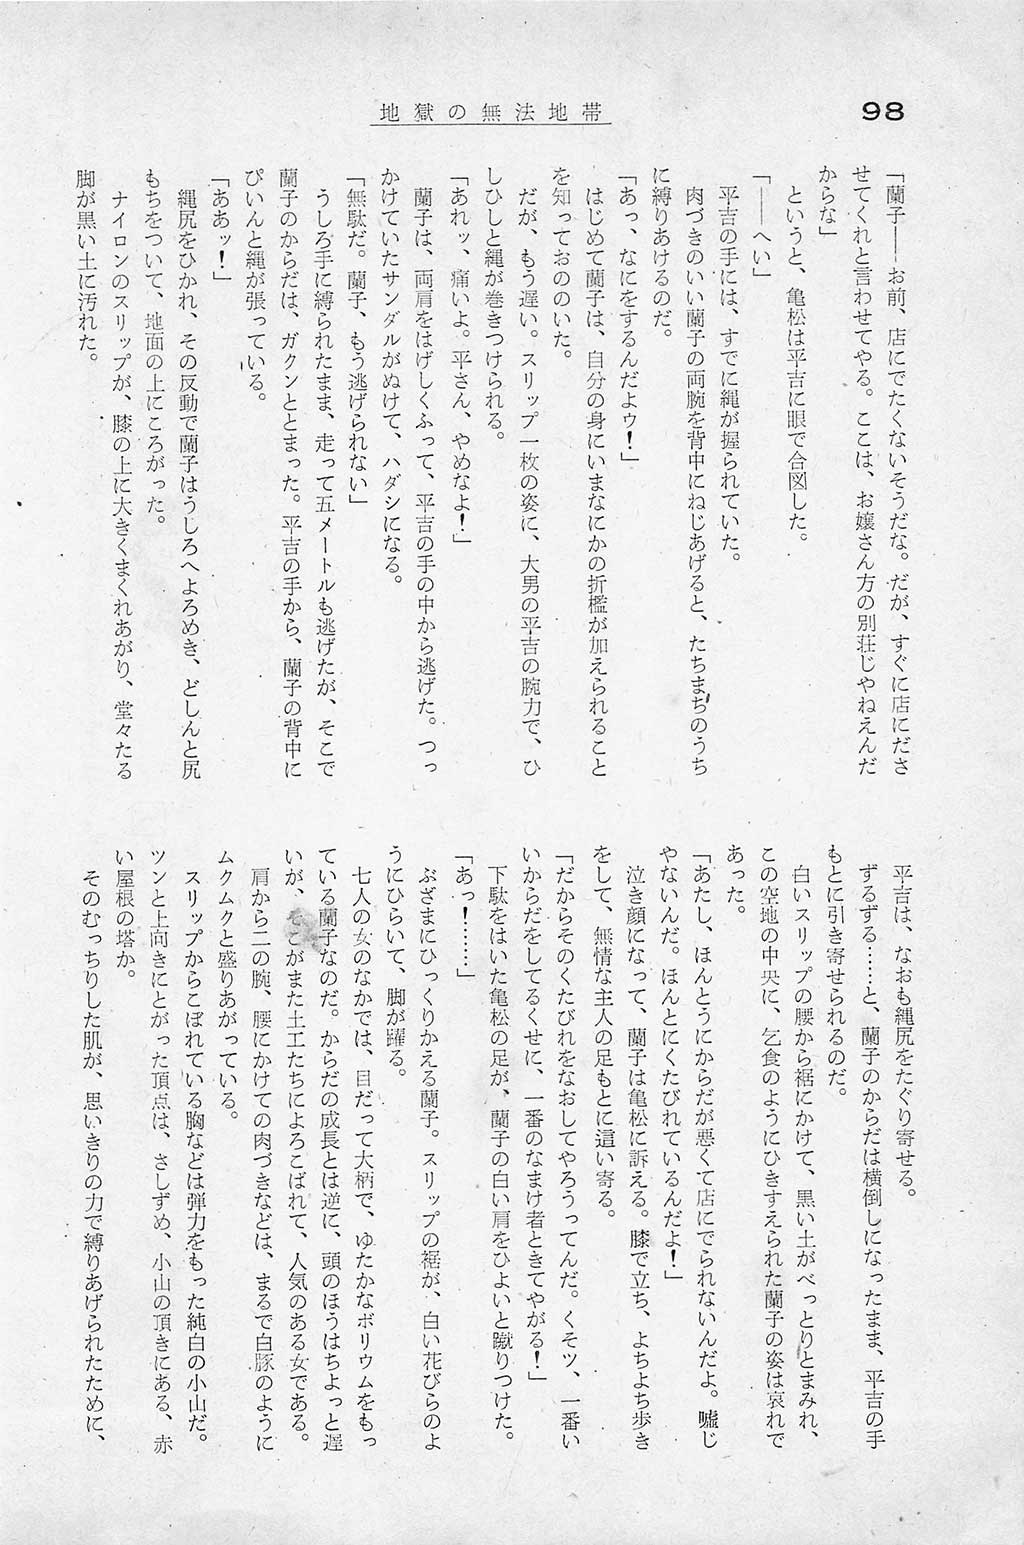 98
地獄の無法地帯
「蘭子――お前、店にでたくないそうだな。だが、すぐに店にださ
せてくれと言わせてやる。ここは、お嬢さん方の別荘じやねえんだ
からな」
というと、亀松は平吉に眼で合図した。
「――へい」
平吉の手には、すでに縄が握られていた。
肉づきのいい蘭子の両腕を背中にねじあげると、たちまちのうち
に縛りあげるのだ。
「あっ、なにをするんだよゥ！」
はじめて蘭子は、自分の身にいまなにかの折檻が加えられること
を知っておののいた。
だが、もう遅い。スリップ一枚の姿に、大男の平吉の腕力で、ひ
しひしと縄が巻きつけられる。
「あれッ、痛いよ。平さん、やめなよ！」
蘭子は、両肩をはげしくふって、平吉の手の中から逃げた。つっ
かけていたサンダルがぬけて、ハダシになる。
「無駄だ。蘭子、もう逃げられない」
うしろ手に縛られたまま、走って五メートルも逃げたが、そこで
蘭子のからだは、ガクンととまった。平吉の手から、蘭子の背中に
ぴいんと縄が張っている。
「ああッ！」
縄尻をひかれ、その反動で蘭子はうしろへよろめき、どしんと尻
もちをついて、地面の上にころがった。
ナイロンのスリップが、膝の上に大きくまくれあがり、堂々たる
脚が黒い土に汚れた。
平吉は、なおも縄尻をたぐり寄せる。
ずるずる……と、蘭子のからだは横倒しになったまま、平吉の手
もとに引き寄せられるのだ。
白いスリップの腰から裾にかけて、黒い土がべっとりとまみれ、
この空地の中央に、乞食のようにひきすえられた蘭子の姿は哀れで
あった。
「あたし、ほんとうにからだが悪くて店にでられないんだよ。嘘じ
やないんだ。ほんとにくたびれているんだよ！」
泣き顔になって、蘭子は亀松に訴える。膝で立ち、よちよち歩き
をして、無情な主人の足もとに這い寄る。
「だからそのくたびれをなおしてやろうってんだ。くそッ、一番い
いからだをしてるくせに、一番のなまけ者ときてやがる！」
下駄をはいた亀松の足が、蘭子の白い肩をひよいと蹴りつけた。
「あっ！……」
ぶざまにひっくりかえる蘭子。スリップの裾が、白い花びらのよ
うにひらいて、脚が躍る。
七人の女のなかでは、目だって大柄で、ゆたかなボリウムをもっ
ている蘭子なのだ。からだの成長とは逆に、頭のほうはちょっと遅
いが、そこがまた土工たちによろこばれて、人気のある女である。
肩から二の腕、腰にかけての肉づきなどは、まるで白豚のように
ムクムクと盛りあがっている。
スリップからこぼれている胸などは弾力をもった純白の小山だ。
ツンと上向きにとがった頂点は、さしずめ、小山の頂きにある、赤
い屋根の塔か。
そのむっちりした肌が、思いきりの力で縛りあげられたために、